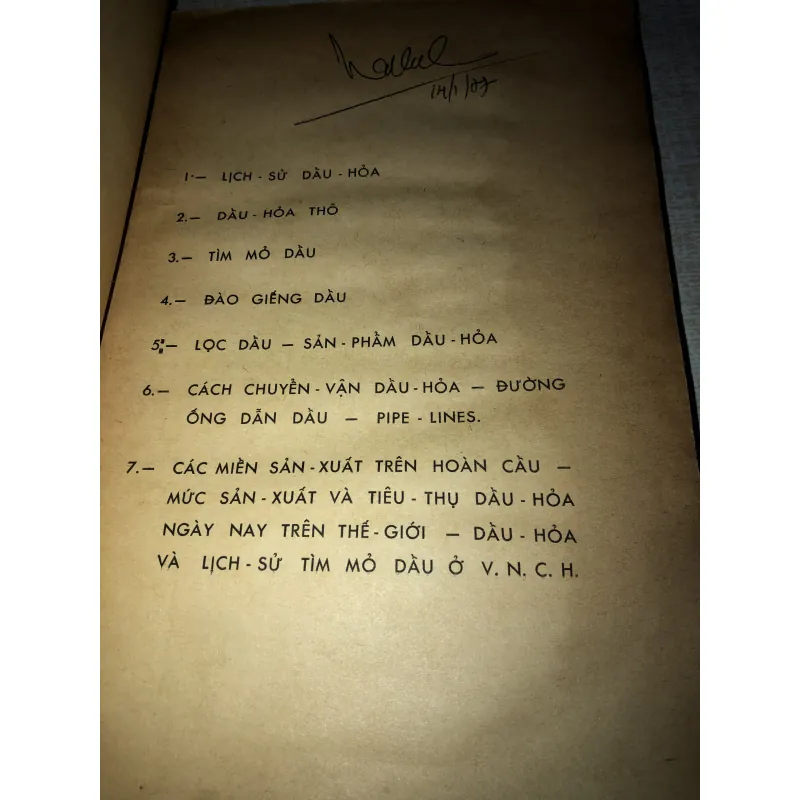 14/1/77
1.— LỊCH - SỬ DẦU - HỎA
2.— DẦU - HỎA THÔ
3.— TÌM MỎ DẦU
4.— ĐÀO GIẾNG DẦU
5.— LỌC DẦU — SẢN - PHẨM DẦU - HỎA
6.— CÁCH CHUYỂN - VẬN DẦU - HỎA — ĐƯỜNG
ỐNG DẪN DẦU — PIPE - LINES.
7.— CÁC MIỀN SẢN - XUẤT TRÊN HOÀN CẦU —
MỨC SẢN - XUẤT VÀ TIÊU - THỤ DẦU - HỎA
NGÀY NAY TRÊN THẾ - GIỚI — DẦU - HỎA
VÀ LỊCH - SỬ TÌM MỎ DẦU Ở V. N. C. H.